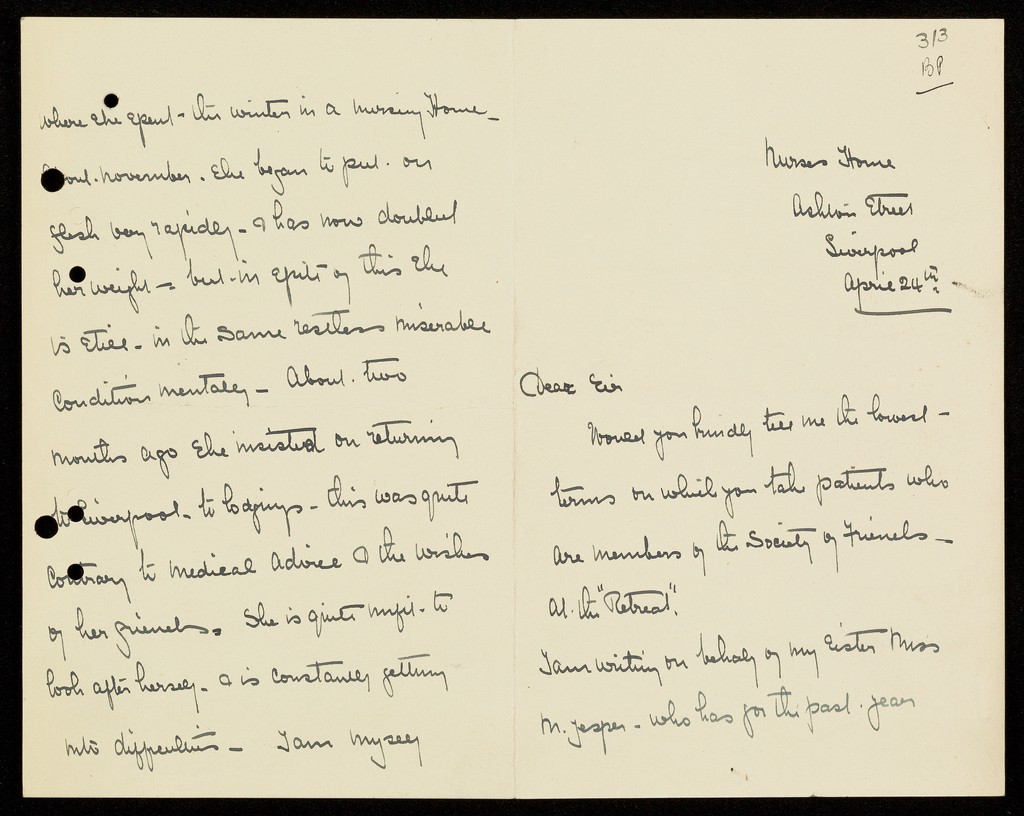 3/3
BP
Nurses Home
Ashton Street
Liverpool
April 24th
Dear Sir
Would you kindly tell me the lowest -
terms on which you take patients who
are members of the Society of Friends -
at the "Retreat".
I am writing on behalf of my sister Miss
M. Jesper - who has for the past year
where she spent the winter in a nursing Home -
About November. She began to put on
flesh very rapidly - & has now doubled
her weight - but in spite of this she
is still - in the same restless miserable
condition mentally - About two
months ago she insisted on returning
to Liverpool - to lodgings - this was quite
contrary to medical advice & the wishes
of her friends. She is quite unfit to
look after herself - & is constantly getting
into difficulties - I am myself